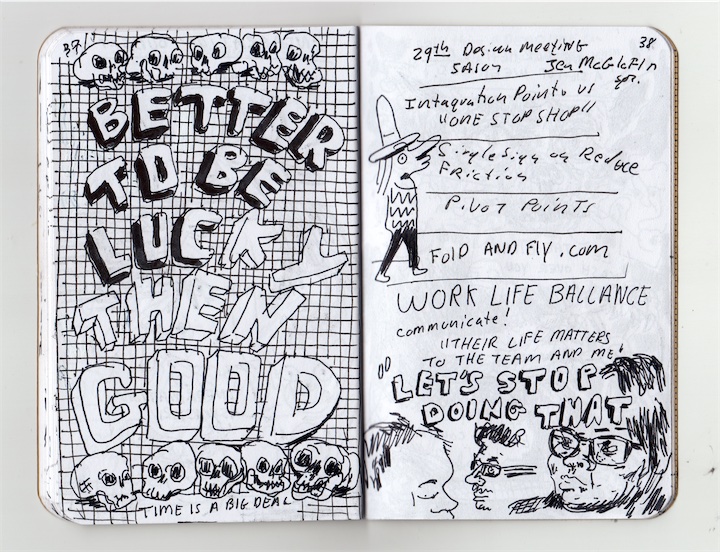 37
BETTER
TO BE
LUCKY
THEN
GOOD
TIME IS A BIG DEAL
38
29th Design Meeting
Jen
Intaquation Points vs
"ONE STOP SHOP"
Single Sign on Reduce
FRiction
Pivot Points
FOLD AND FLY.COM
WORK LIFE BALLANCE
communicate!
"THEIR LIFE MATTERS
TO THE TEAM AND ME"
LET'S STOP
DOING THAT